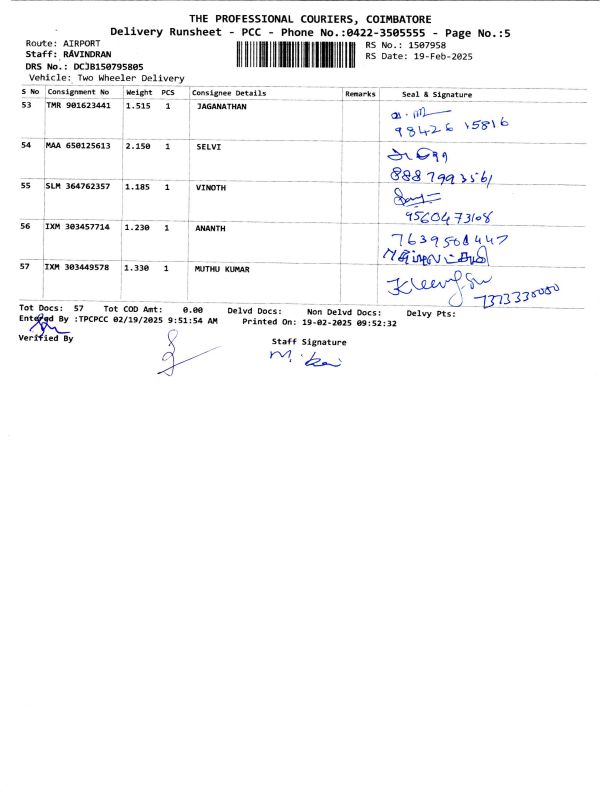 THE PROFESSIONAL COURIERS, COIMBATORE
Delivery Runsheet - PCC - Phone No.:0422-3505555 - Page No.:5
Route: AIRPORT
RS No.: 1507958
Staff: RAVINDRAN
RS Date: 19-Feb-2025
DRS No.: DCJB150795805
Vehicle: Two Wheeler Delivery
S No Consignment No Weight PCS Consignee Details Remarks Seal & Signature
53 TMR 901623441 1.515 1 JAGANATHAN
98426 15816
54 MAA 650125613 2.150 1 SELVI
8887993561
55 SLM 364762357 1.185 1 VINOTH
9560473108
56 IXM 303457714 1.230 1 ANANTH
57 IXM 303449578 1.330 1 MUTHU KUMAR
Tot Docs: 57 Tot COD Amt: 0.00 Delvd Docs: Non Delvd Docs: Delvy Pts:
Entered By :TPCPCC 02/19/2025 9:51:54 AM Printed On: 19-02-2025 09:52:32
Verified By
Staff Signature